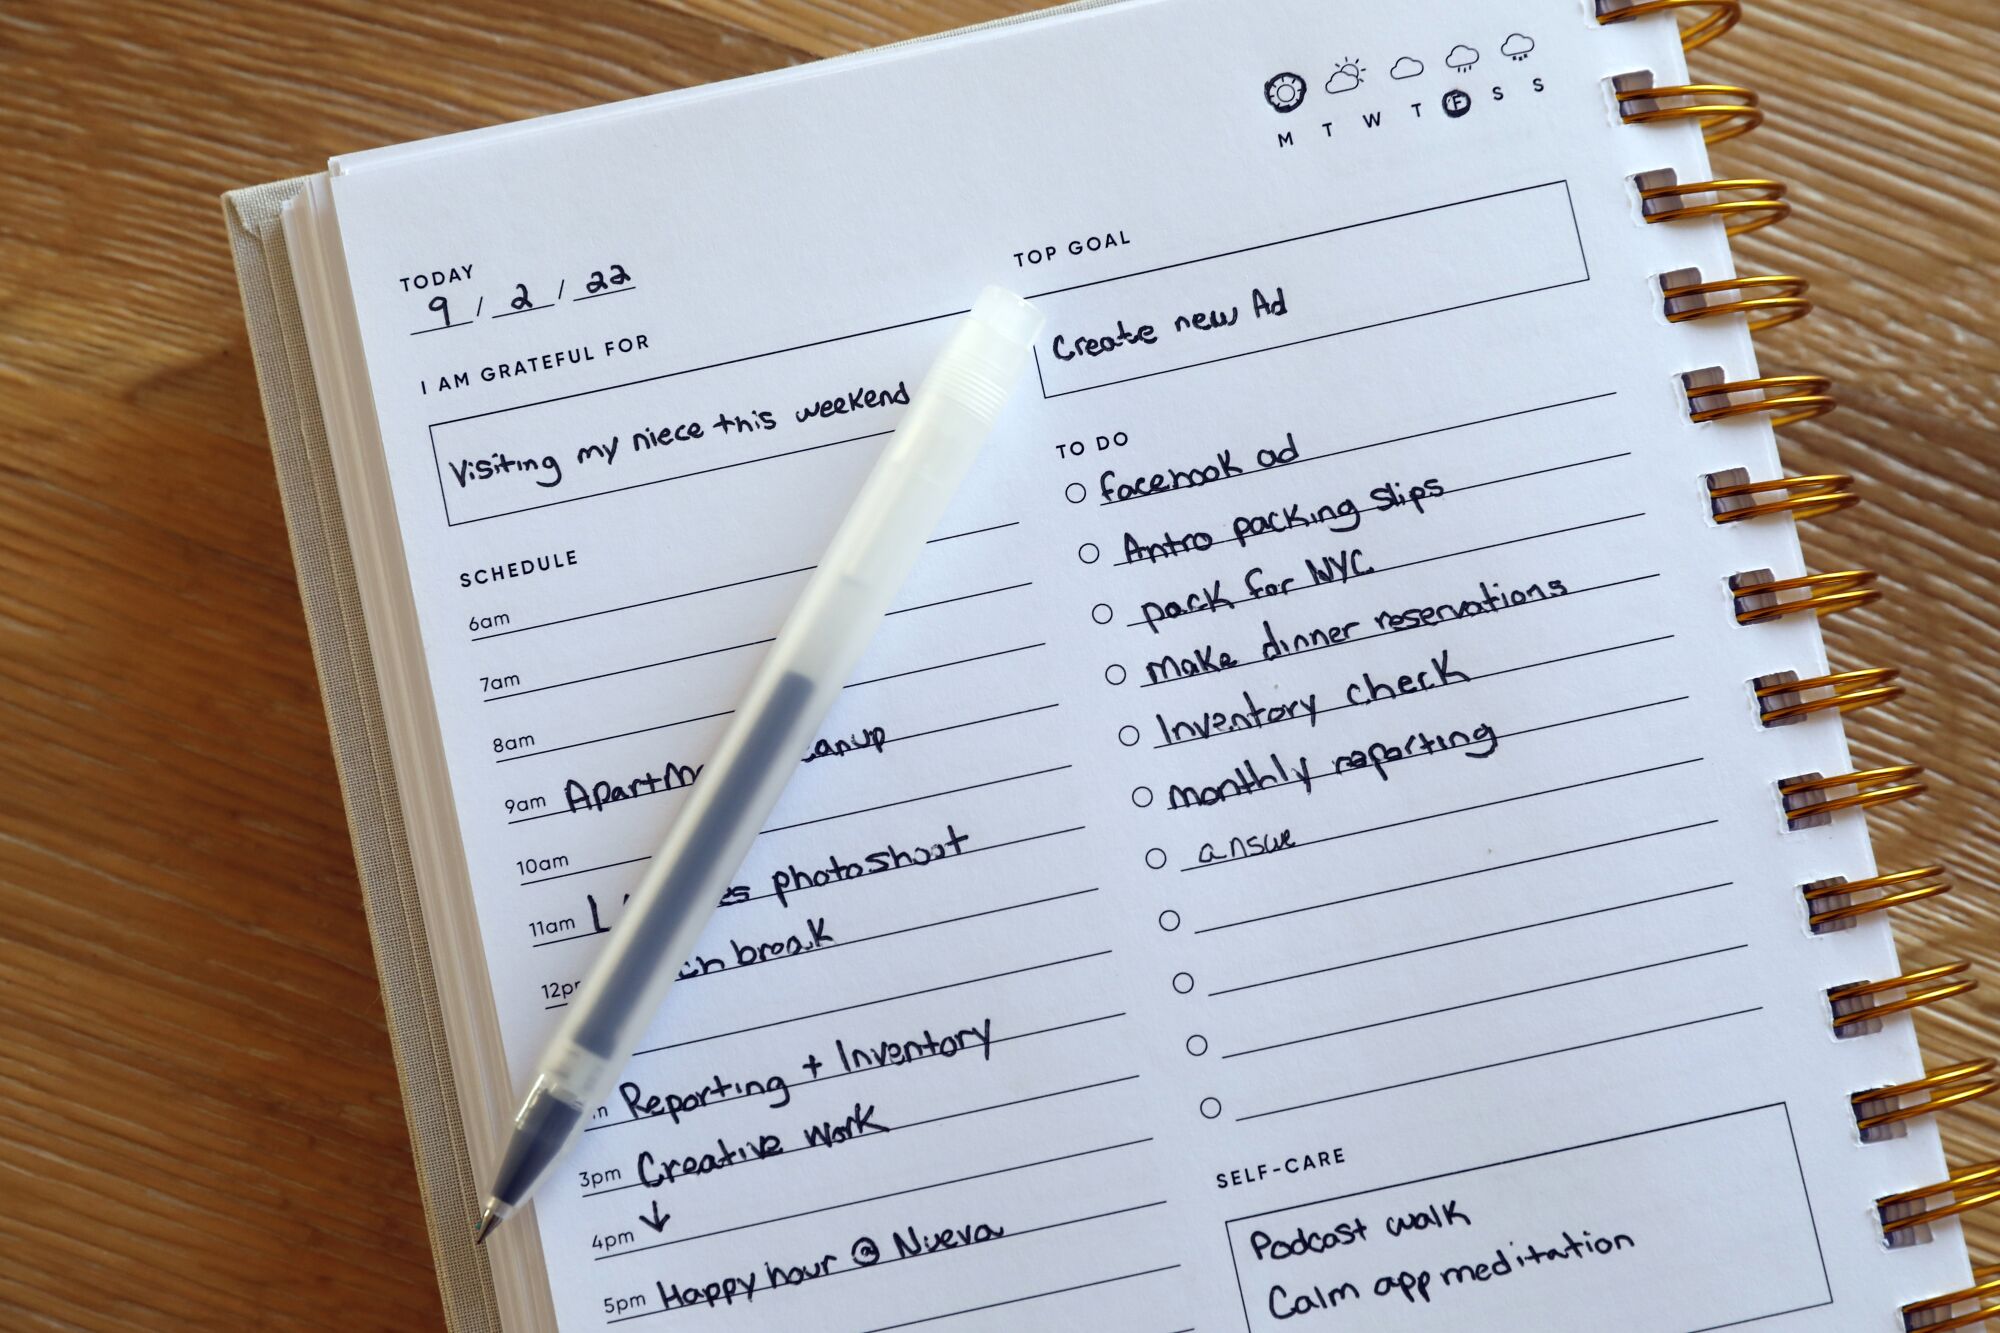 M T W T F S S
TODAY
9 / 2 / 22
I AM GRATEFUL FOR
Visiting my niece this weekend
SCHEDULE
6am
7am
8am
9am Apartm anup
10am
11am L es photoshoot
12p ch break
Reporting + Inventory
3pm Creative work
4pm ↓
5pm Happy hour @ Nueva
TOP GOAL
Create new Ad
TO DO
facebook ad
Antro packing slips
pack for NYC
make dinner reservations
Inventory check
monthly reporting
answe
SELF-CARE
Podcast walk
Calm app meditation